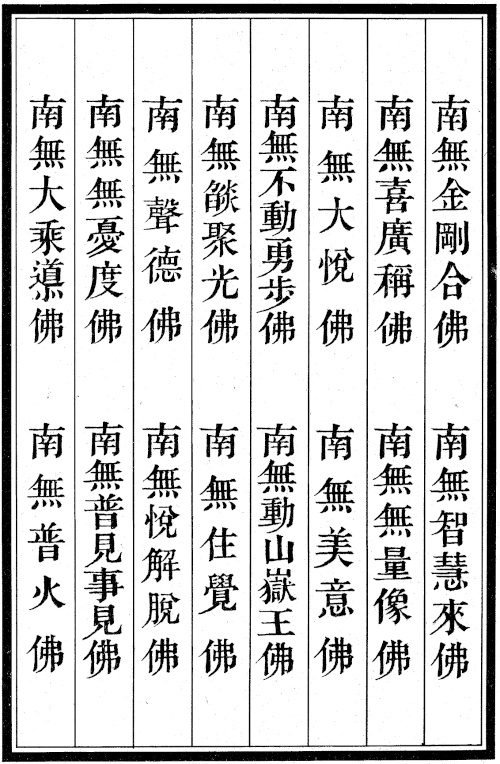 南無金剛合佛　南無智慧來佛
南無喜廣稱佛　南無無量像佛
南無大悅佛　南無美意佛
南無不動勇步佛　南無動山嶽王佛
南無燄聚光佛　南無住覺佛
南無聲德佛　南無悅解脫佛
南無無憂度佛　南無普見事見佛
南無大乘導佛　南無普火佛